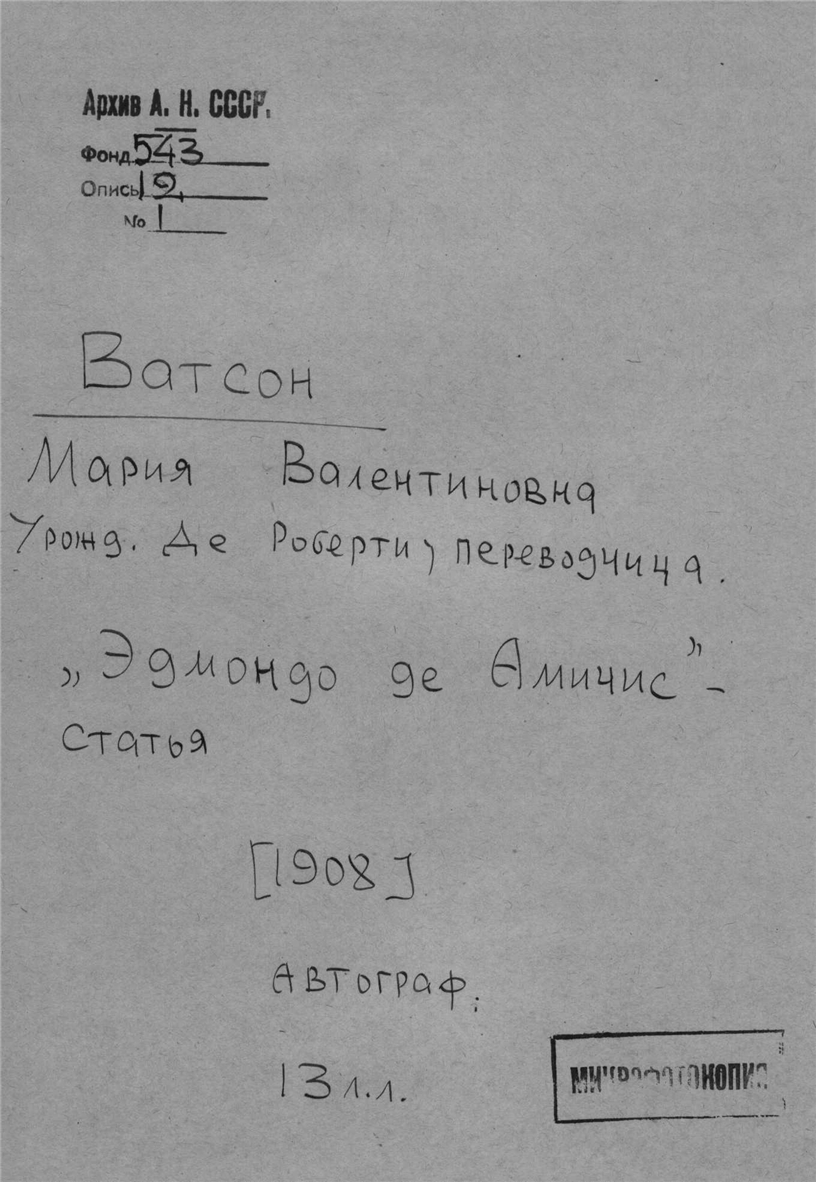 Архив А. Н. СССР.
Фонд 543
Опись 19,
No 1
Ватсон
Мария Валентиновна
Урожд. Де Роберти, переводчица.
„Эдмондо де Амичис” –
статья
[1908]
Автограф.
13 л.л.
МИКРОФОТОКОПИЯ